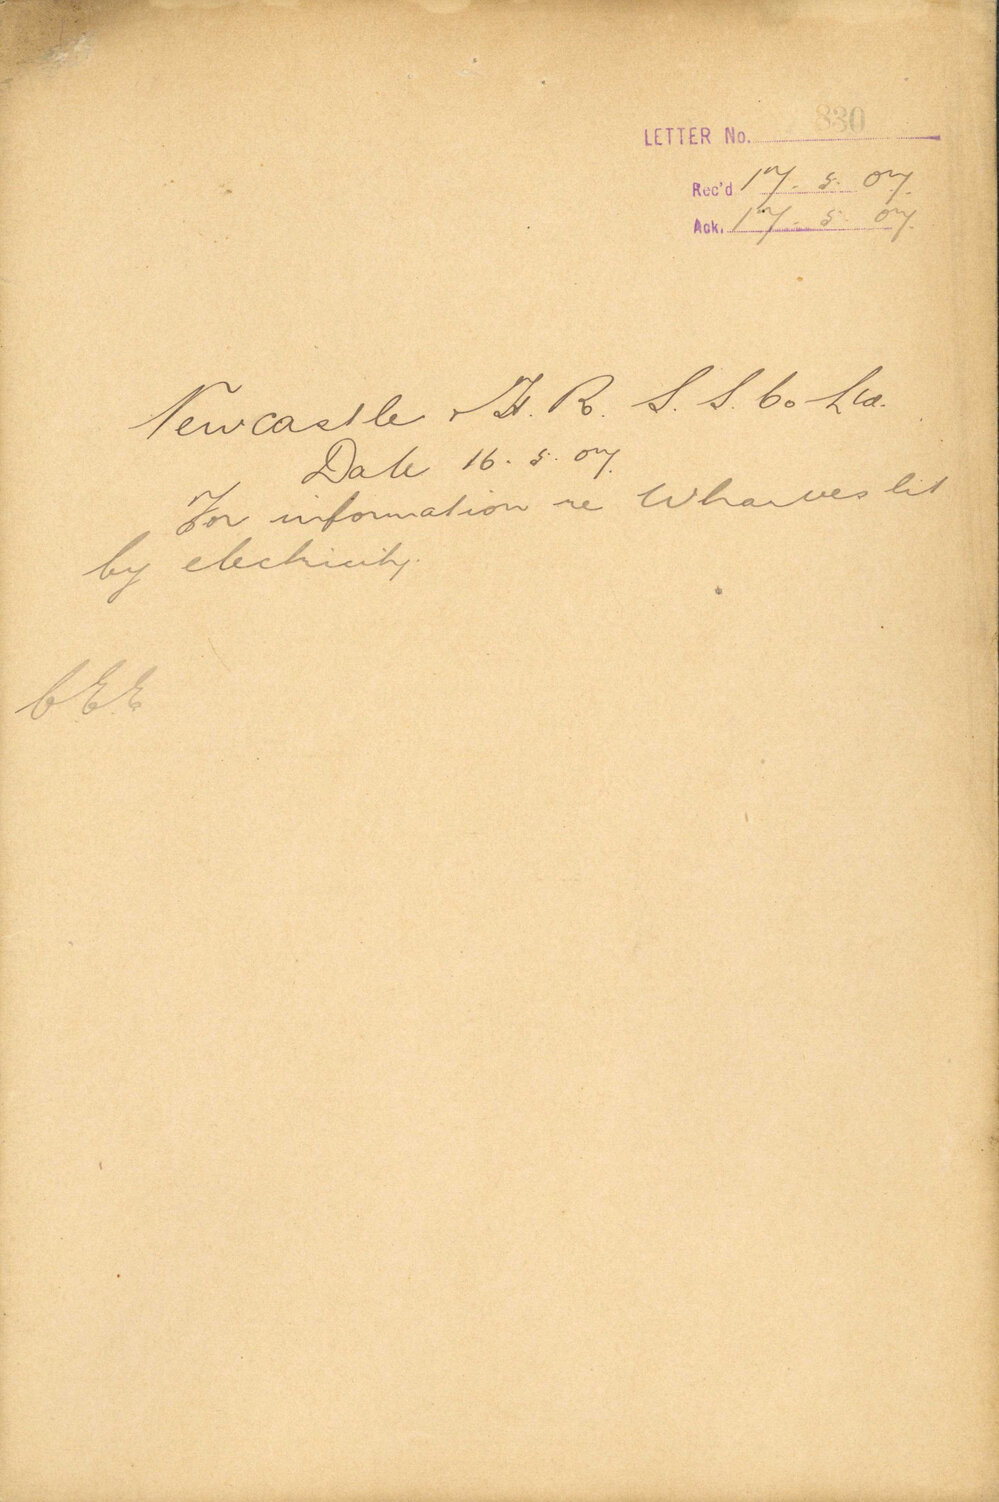 LETTER No. 830
Rec'd 17. 5. 07.
Ack. 17. 5. 07.
Newcastle & H. R. S. S. Co Ltd.
Date 16. 5. 07.
For information re Wharves lit
by electricity.
C.E.E